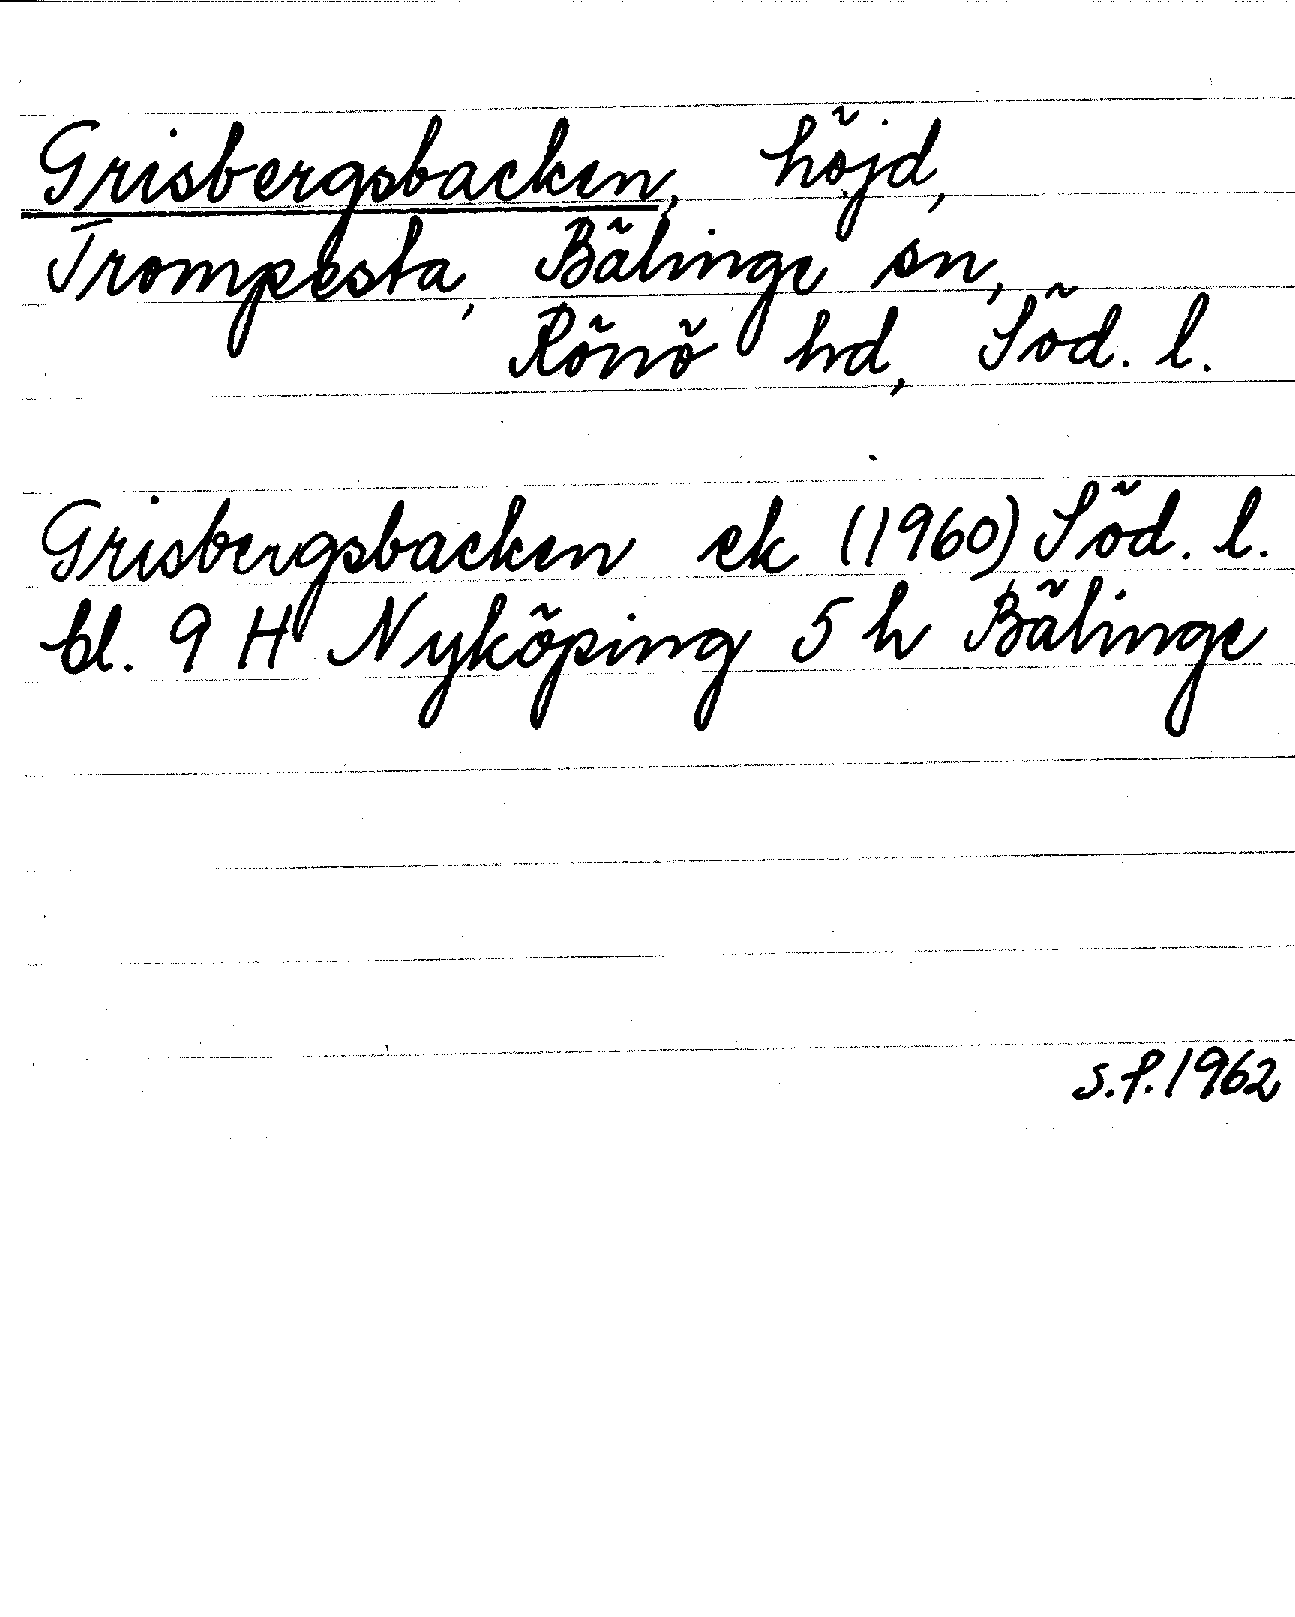 Grisbergsbacken, höjd,
Trompesta, Bälinge sn,
Rönö hd, Söd. l.
Grisbergsbacken ek (1960) Söd. l.
bl. 9 H Nyköping 5 h Bälinge
S.P. 1962